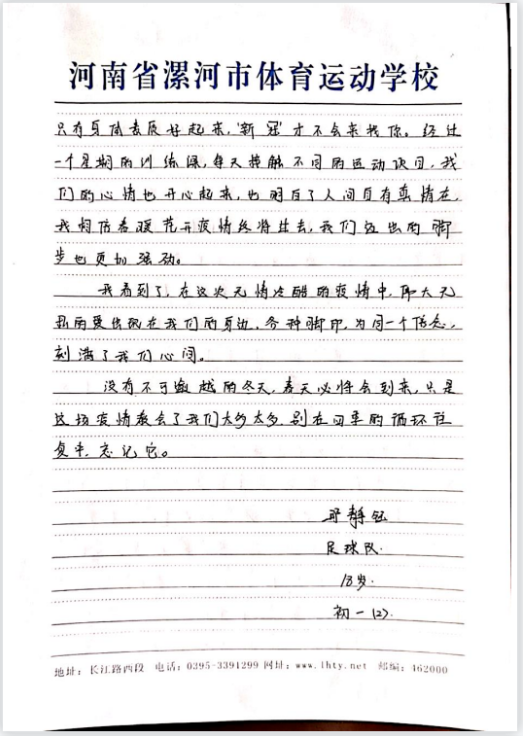 河南省漯河市体育运动学校
只有身体素质好起来,"新冠"才不会来找你。经过
一个星期的训练课,每天接触不同的运动项目,我
们的心情也开心起来,也明白了人间自有真情在,
我相信春暖花开疫情终将过去,我们迈出的脚
步也更加强劲。
我看到了,在这次无情冷酷的疫情中,那大无
私的爱出现在我们的身边,各种脚印,为同一个信念,
刻满了我们心间。
没有不可逾越的冬天,春天必将会到来,只是
这场疫情教会了我们太多太多,别在四季的循环往
复中,忘记它。
静钰
足球队.
13岁.
初一(2).
地址:长江路西段 电话:0395-3391299 网址:www.lhty.net 邮编:462000